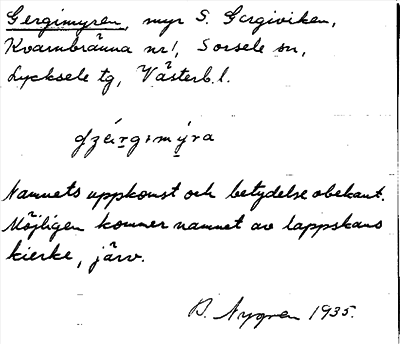 Gergimyren, myr S. Gergiviken,
Kvarnbränna nr 1, Sorsele sn,
Lycksele tg, Västerb. l.
Namnets uppkomst och betydelse obekant.
Möjligen kommer namnet av lappskans
kierke, järv.
B. Nygren 1935.